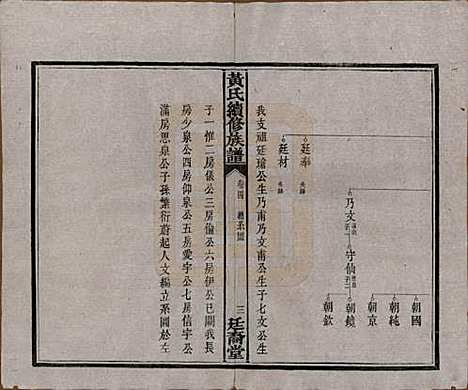 朝國
朝純
朝京
乃文 守仙 朝鏡
朝欽
廷奉
廷材
我支祖廷瑜公生乃甫乃文甫公生子七文公生
黃氏續修族譜 卷四 總系圖 三 廷裔堂
子一惟二房儀公三房倫公六房伊公已闕我長
房少泉公四房仰泉公五房愛宇公七房信宇公
滿房思泉公子孫繁衍蔚起人文編立系圖於左